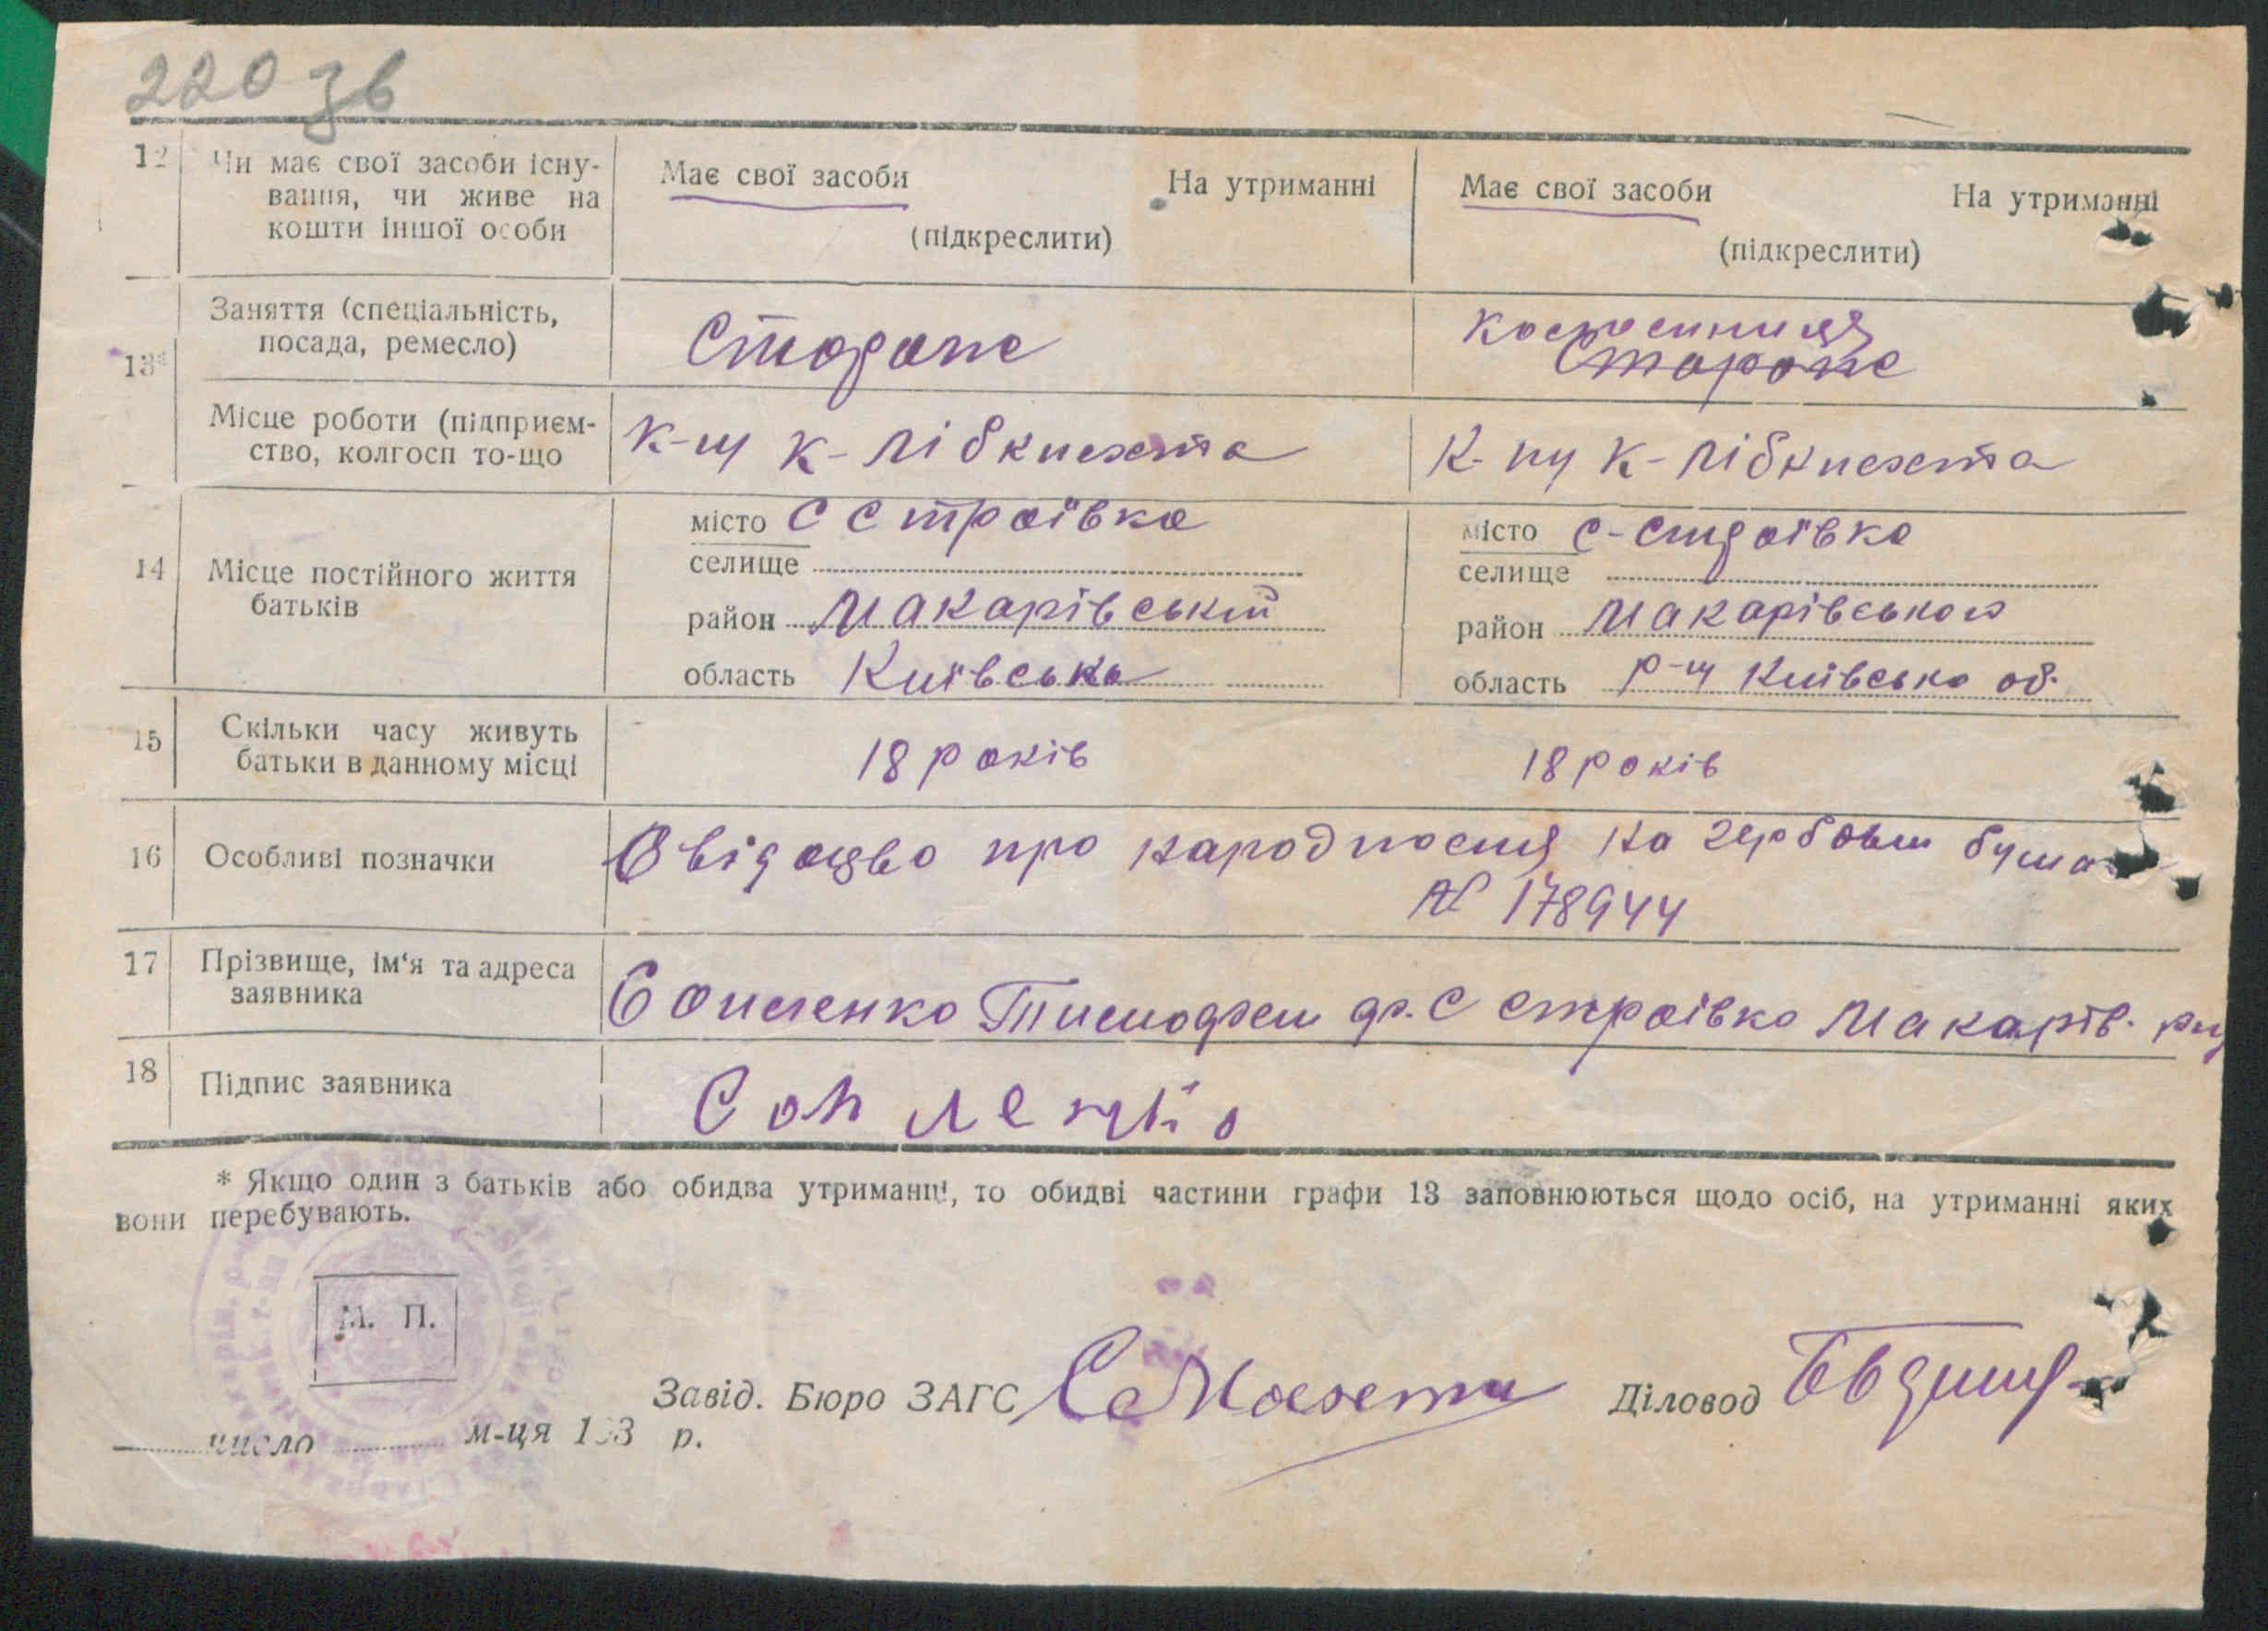 220 зв
12 Чи має свої засоби існу- Має свої засоби На утриманні Має свої засоби На утриманні
вання, чи живе на
кошти іншої особи (підкреслити) (підкреслити)
Заняття (спеціальність,
посада, ремесло) Стороже Стороже
13*
Місце роботи (підприєм- К-п К-Лібкнехта К-пу К-Лібкнехта
ство, колгосп то-що
місто С Строївка місто с-Строївка
14 Місце постійного життя селище селище
батьків район Макарівський район Макарівського
область Київська область р-у Київсько об.
15 Скільки часу живуть 18 років 18 років
батьки в данному місці
16 Особливі позначки Свідоцво про народность на гербовім бума
№ 178944
17 Прізвище, ім'я та адреса
заявника Сопиленко др. С Строївка Макарів. р-ну
18 Підпис заявника Сопиленко
* Якщо один з батьків або обидва утриманці, то обидві частини графи 13 заповнюються щодо осіб, на утриманні яких
вони перебувають.
М. П.
Завід. Бюро ЗАГС Діловод
число м-ця 193 р.